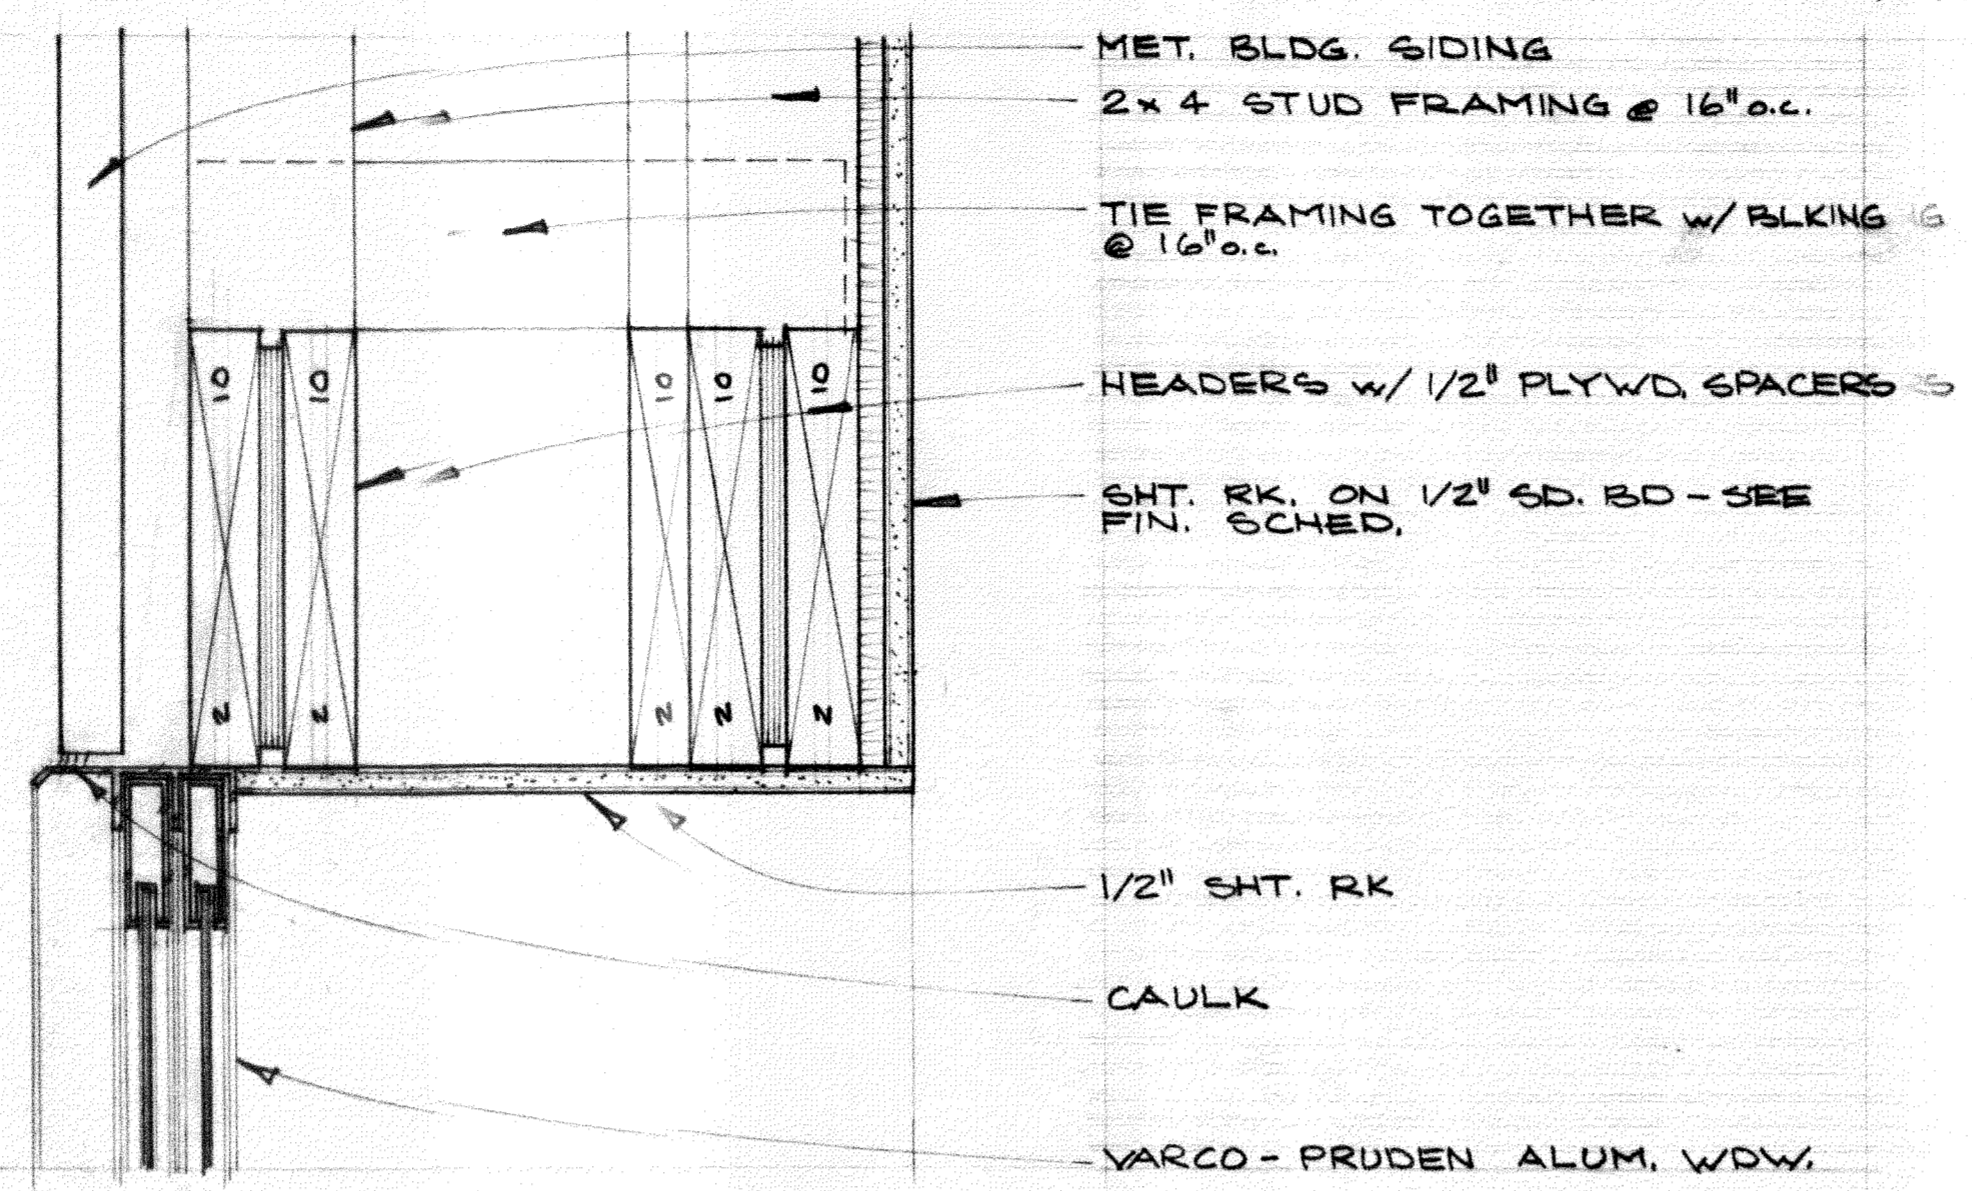 MET. BLDG. SIDING
2x4 STUD FRAMING @ 16" o.c.
TIE FRAMING TOGETHER w/ BLKING
@ 16" o.c.
10 10 10 10 10
HEADERS w/ 1/2" PLYWD. SPACERS
SHT. RK. ON 1/2" SD. BD - SEE
FIN. SCHED.
2 2 2 2 2
1/2" SHT. RK
CAULK
VARCO-PRUDEN ALUM. WDW.